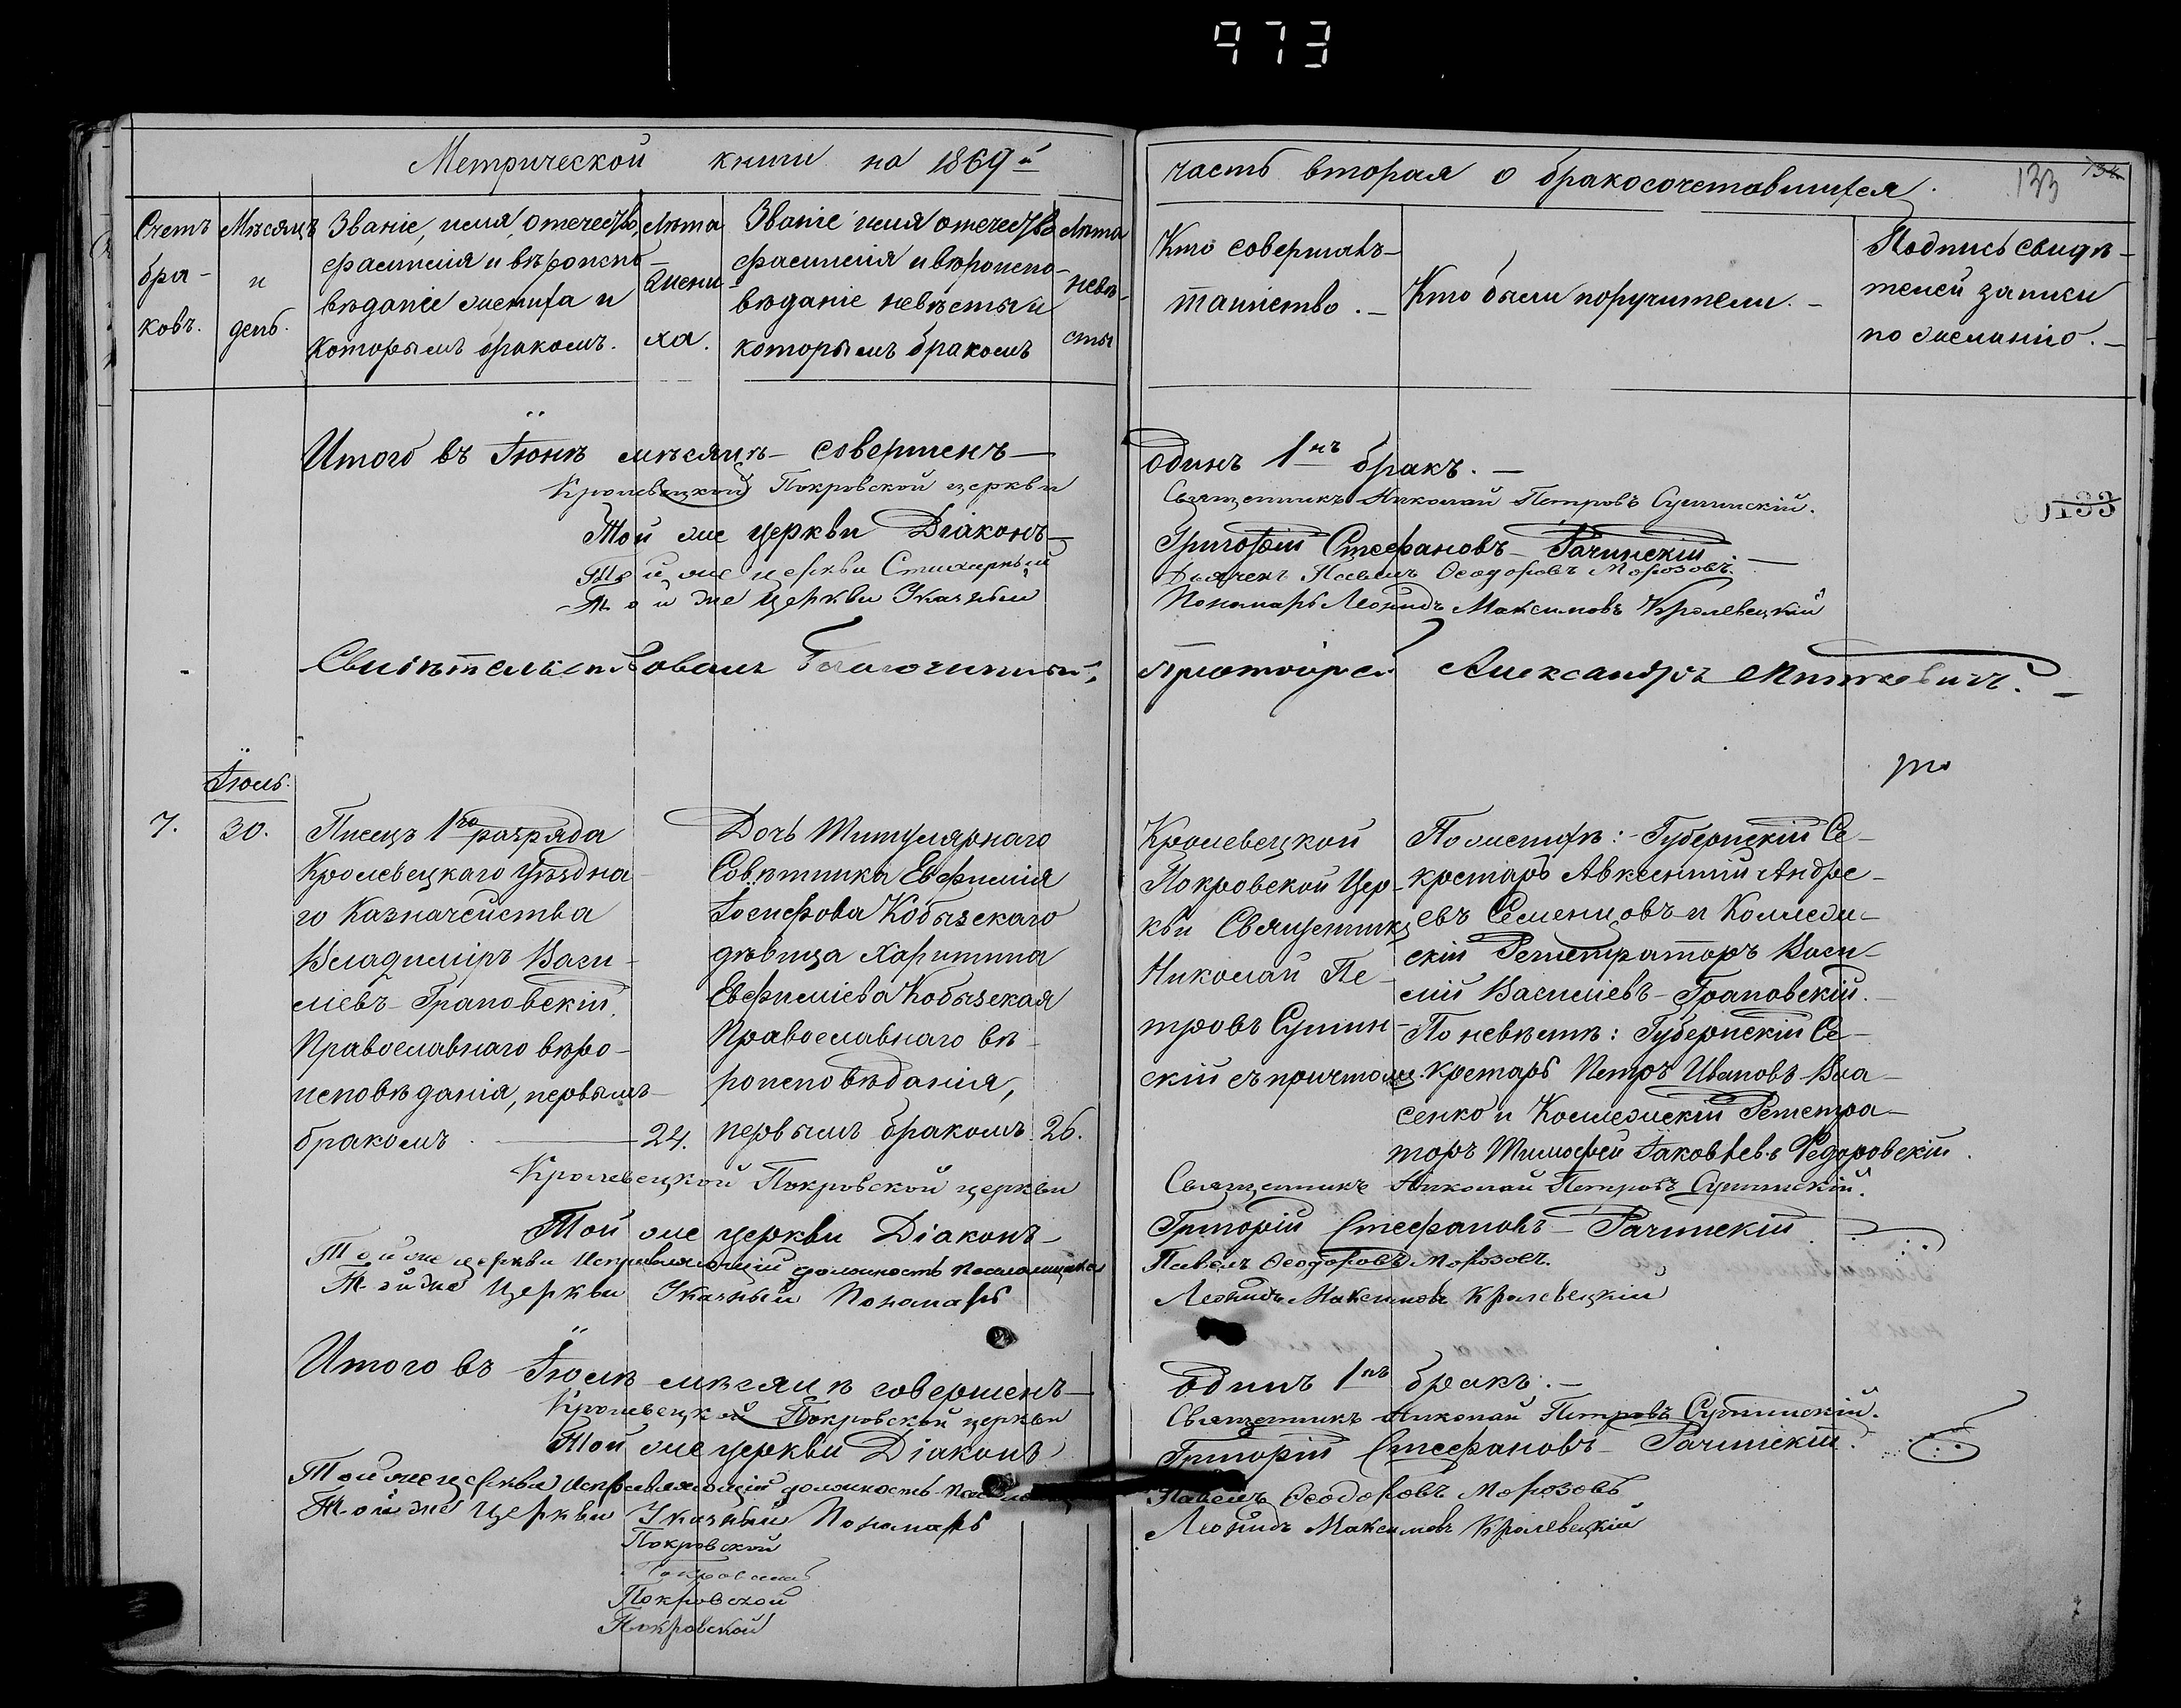 973
Метрической книги на 1869й
часть вторая о бракосочетавшихся.
133
134
Счетъ браковъ.
Мѣсяцъ и день.
Званіе, имя, отечество,
фамилія и вѣроиспо-
вѣданіе жениха и
которымъ бракомъ.
Лѣта
жени-
ха.
Званіе имя отечество
фамилія и вѣроиспо-
вѣданіе невѣсты и
которымъ бракомъ
Лѣта
невѣ-
сты
Кто совершалъ
таинство.
Кто были поручители.
Подпись свидѣ-
телей записи
по желанію.
Итого въ Іюнѣ мѣсяцѣ совершенъ
одинъ 1нъ бракъ.
Кролевецкой Покровской церкви
Священникъ Николай Петровъ Сушинскій.
Той же церкви Діаконъ
Григорій Стефановъ Рачинскій
Той же церкви Стихарный
Дьячекъ Павелъ Ѳеодоровъ Морозовъ.
Той же Церкви Указный
Пономарь Леонидъ Максимовъ Кролевецкій
00133
Свидѣтельствовалъ Благочинный,
Протоіерей Александръ
Іюль.
7.
30.
Писецъ 1го разряда
Кролевецкаго Уѣздна-
го Казначейства
Владимиръ Васи-
ліевъ Грановскій,
Православнаго вѣро-
исповѣданія, первымъ
бракомъ
24.
Дочь Титулярнаго
Совѣтника Евфимія
Іосифова Кобызскаго
дѣвица Харитина
Евфиміева Кобызская
Православнаго вѣ-
роисповѣданія,
первымъ бракомъ.
26.
Кролевецкой
Покровской Цер-
кви Священникъ
Николай Пе-
тровъ Сушин-
скій съ причтомъ.
По женихѣ: Губернскій Се-
кретарь Авксентій Андре-
евъ Семенцовъ и Коллеж-
скій Регистраторъ Васи-
лій Василіевъ Грановскій.
По невѣстѣ: Губернскій Се-
кретарь Петръ Ивановъ Вла-
сенко и Коллежскій Регистра-
торъ Тимофей Іаковлевъ Федоровскій.
Кролевецкой Покровской церкви
Священникъ Николай Петровъ Сушинскій.
Той же церкви Діаконъ
Григорій Стефановъ Рачинскій
Той же церкви Исправляющій должность Псаломщика
Павелъ Ѳеодоровъ Морозовъ.
Той же Церкви Указный Пономарь
Леонидъ Максимовъ Кролевецкій
Итого въ Іюлѣ мѣсяцѣ совершенъ
одинъ 1нъ бракъ.
Кролевецкой Покровской церкви
Священникъ Николай Петровъ Сушинскій.
Той же церкви Діаконъ
Григорій Стефановъ Рачинскій.
Той же церкви Исправляющій должность
Павелъ Ѳеодоровъ Морозовъ
Той же Церкви Указный Пономарь
Леонидъ Максимовъ Кролевецкій
Покровской
Покровской
Покровской